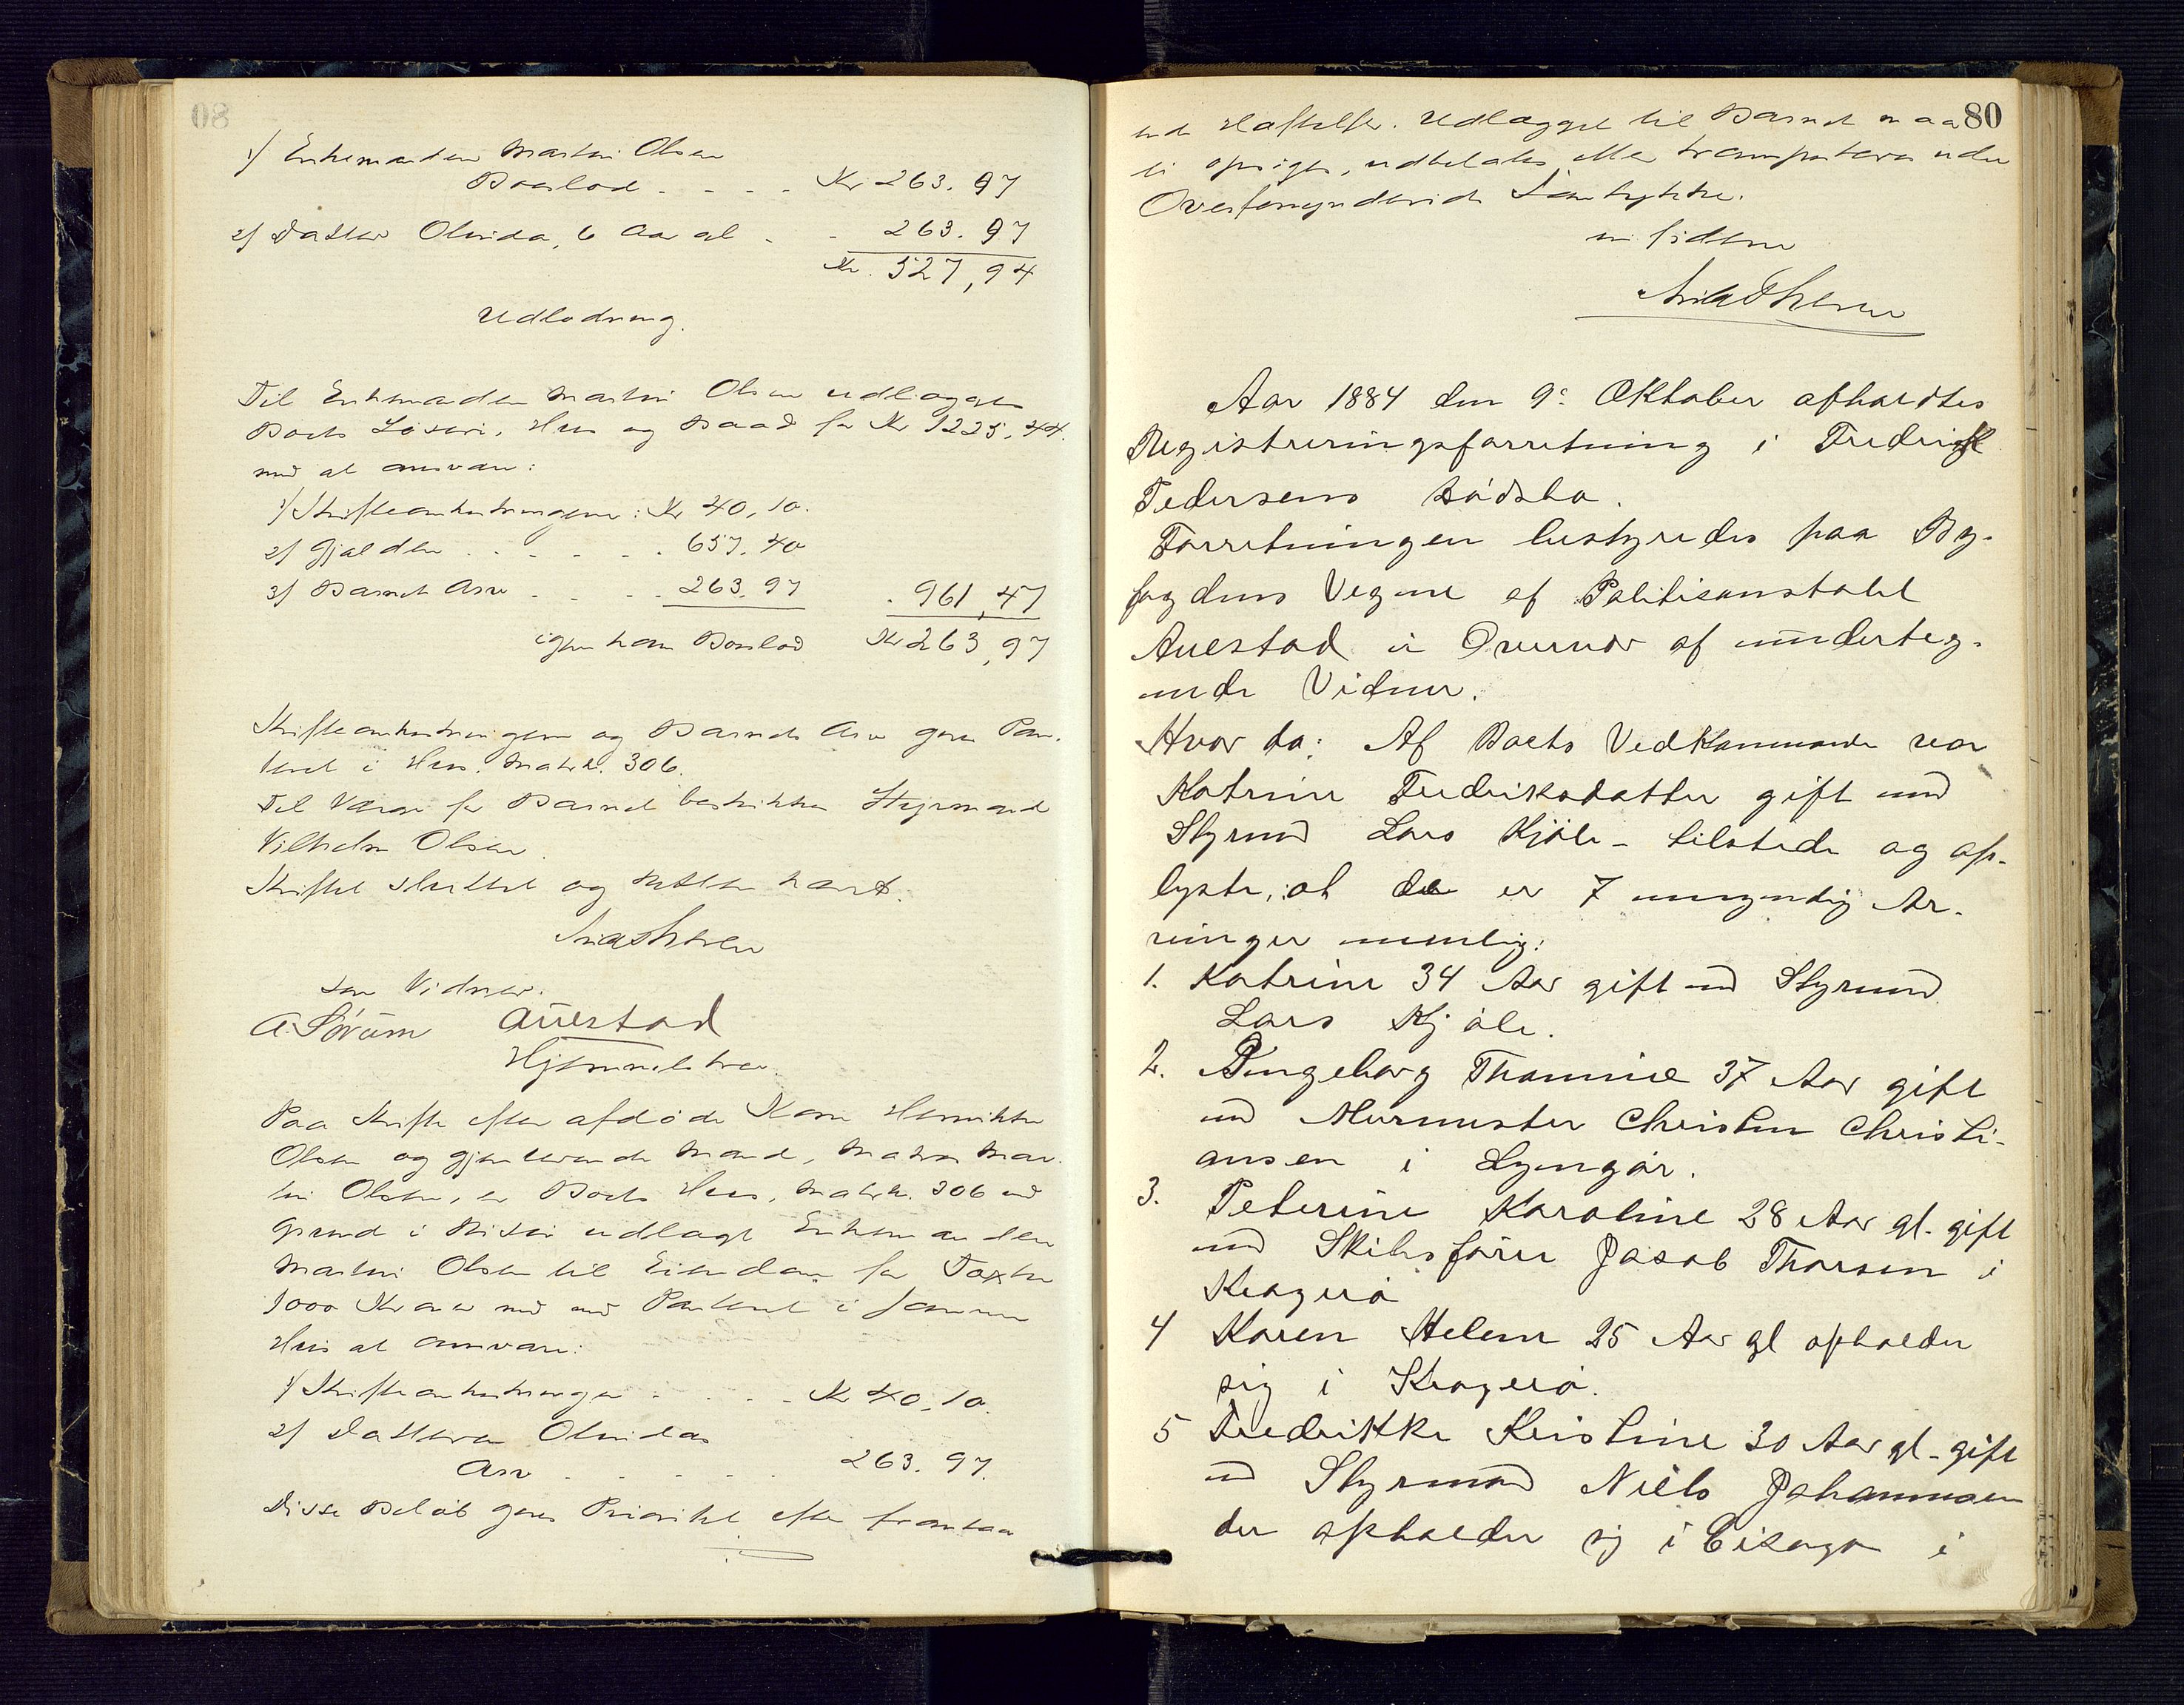 1/ Enkemanden Martin Olsen
Boeslod - - - - Kr 263.97
2/ Datter Olvida, 6 Aar gl - - 263.97
Kr. 527,94
Udlodning.
Til Enkemanden Martin Olsen udlægges
Boets Løsøre, Hus og Baad for Kr 1225,44.
mod at ansvare:
1/ Skifteomkostningerne: Kr 40,10.
2/ Gjælden - - - - - 657.40
3/ Barnets Arv - - - - 263.97 . 961,47
igjen ham Boeslod Kr 263,97
Skifteomkostningerne og Barnets Arv gives Pan-
teret i Hus. Matr. 306.
Til Værge for Barnet beskikkes Styrmand
Vilhelm Olsen.
Skiftet sluttet og Retten hævet.
som Vidner:
A. Sörum Auestad
Paa Skifte efter afdøde Karen Henrikke
Olsen og gjenlevende Mand, Matros Mar-
tin Olsen, er Boets Hus, Matr. 306 med
Grund i Risør udlagt Enkemanden
Martin Olsen til Eiendom for Taxten
1000 Kroner mod med Panteret i samme
Hus at ansvare:
1/ Skifteomkostninger - - - - Kr 40,10.
2/ Datteren Olvidas
Arv - - - - - 263.97.
Disse Beløb gives Prioritet efter
80
Hæftelser. Udlægget til Barnet maa
ei opsiges, udbetales eller transporteres uden
Overformynderiets Samtykke.
Aar 1884 den 9de Oktober afholdtes
Registreringsforretning i Fredrik
Pedersens Dødsbo.
Forretningen bestyredes paa By-
fogdens Vegne af Politikonstabel
Auestad i Overvær af underteg-
nede Vidner.
Hvor da: Af Boets Vedkommende var
Katrine Fredriksdatter gift med
Styrmd Lars Kjöle - tilstede og op-
lyste, at der er 7 umyndig Ar-
vinger nemlig:
1. Katrine 34 Aar gift md Styrmd
Lars Kjöle.
2. Ingeborg Thomine 37 Aar gift
md Murmester Christen Christi-
ansen i Lyngör.
3. Peterine Karoline 28 Aar gl. gift
md Skibsförer Jacob Thorsen i
Kragerö
4 Karen Helene 25 Aar gl opholder
sig i Kragerö.
5 Fredrikke Kristine 30 Aar gl. gift
md Styrmand Niels Johannesen
der opholder sig i i